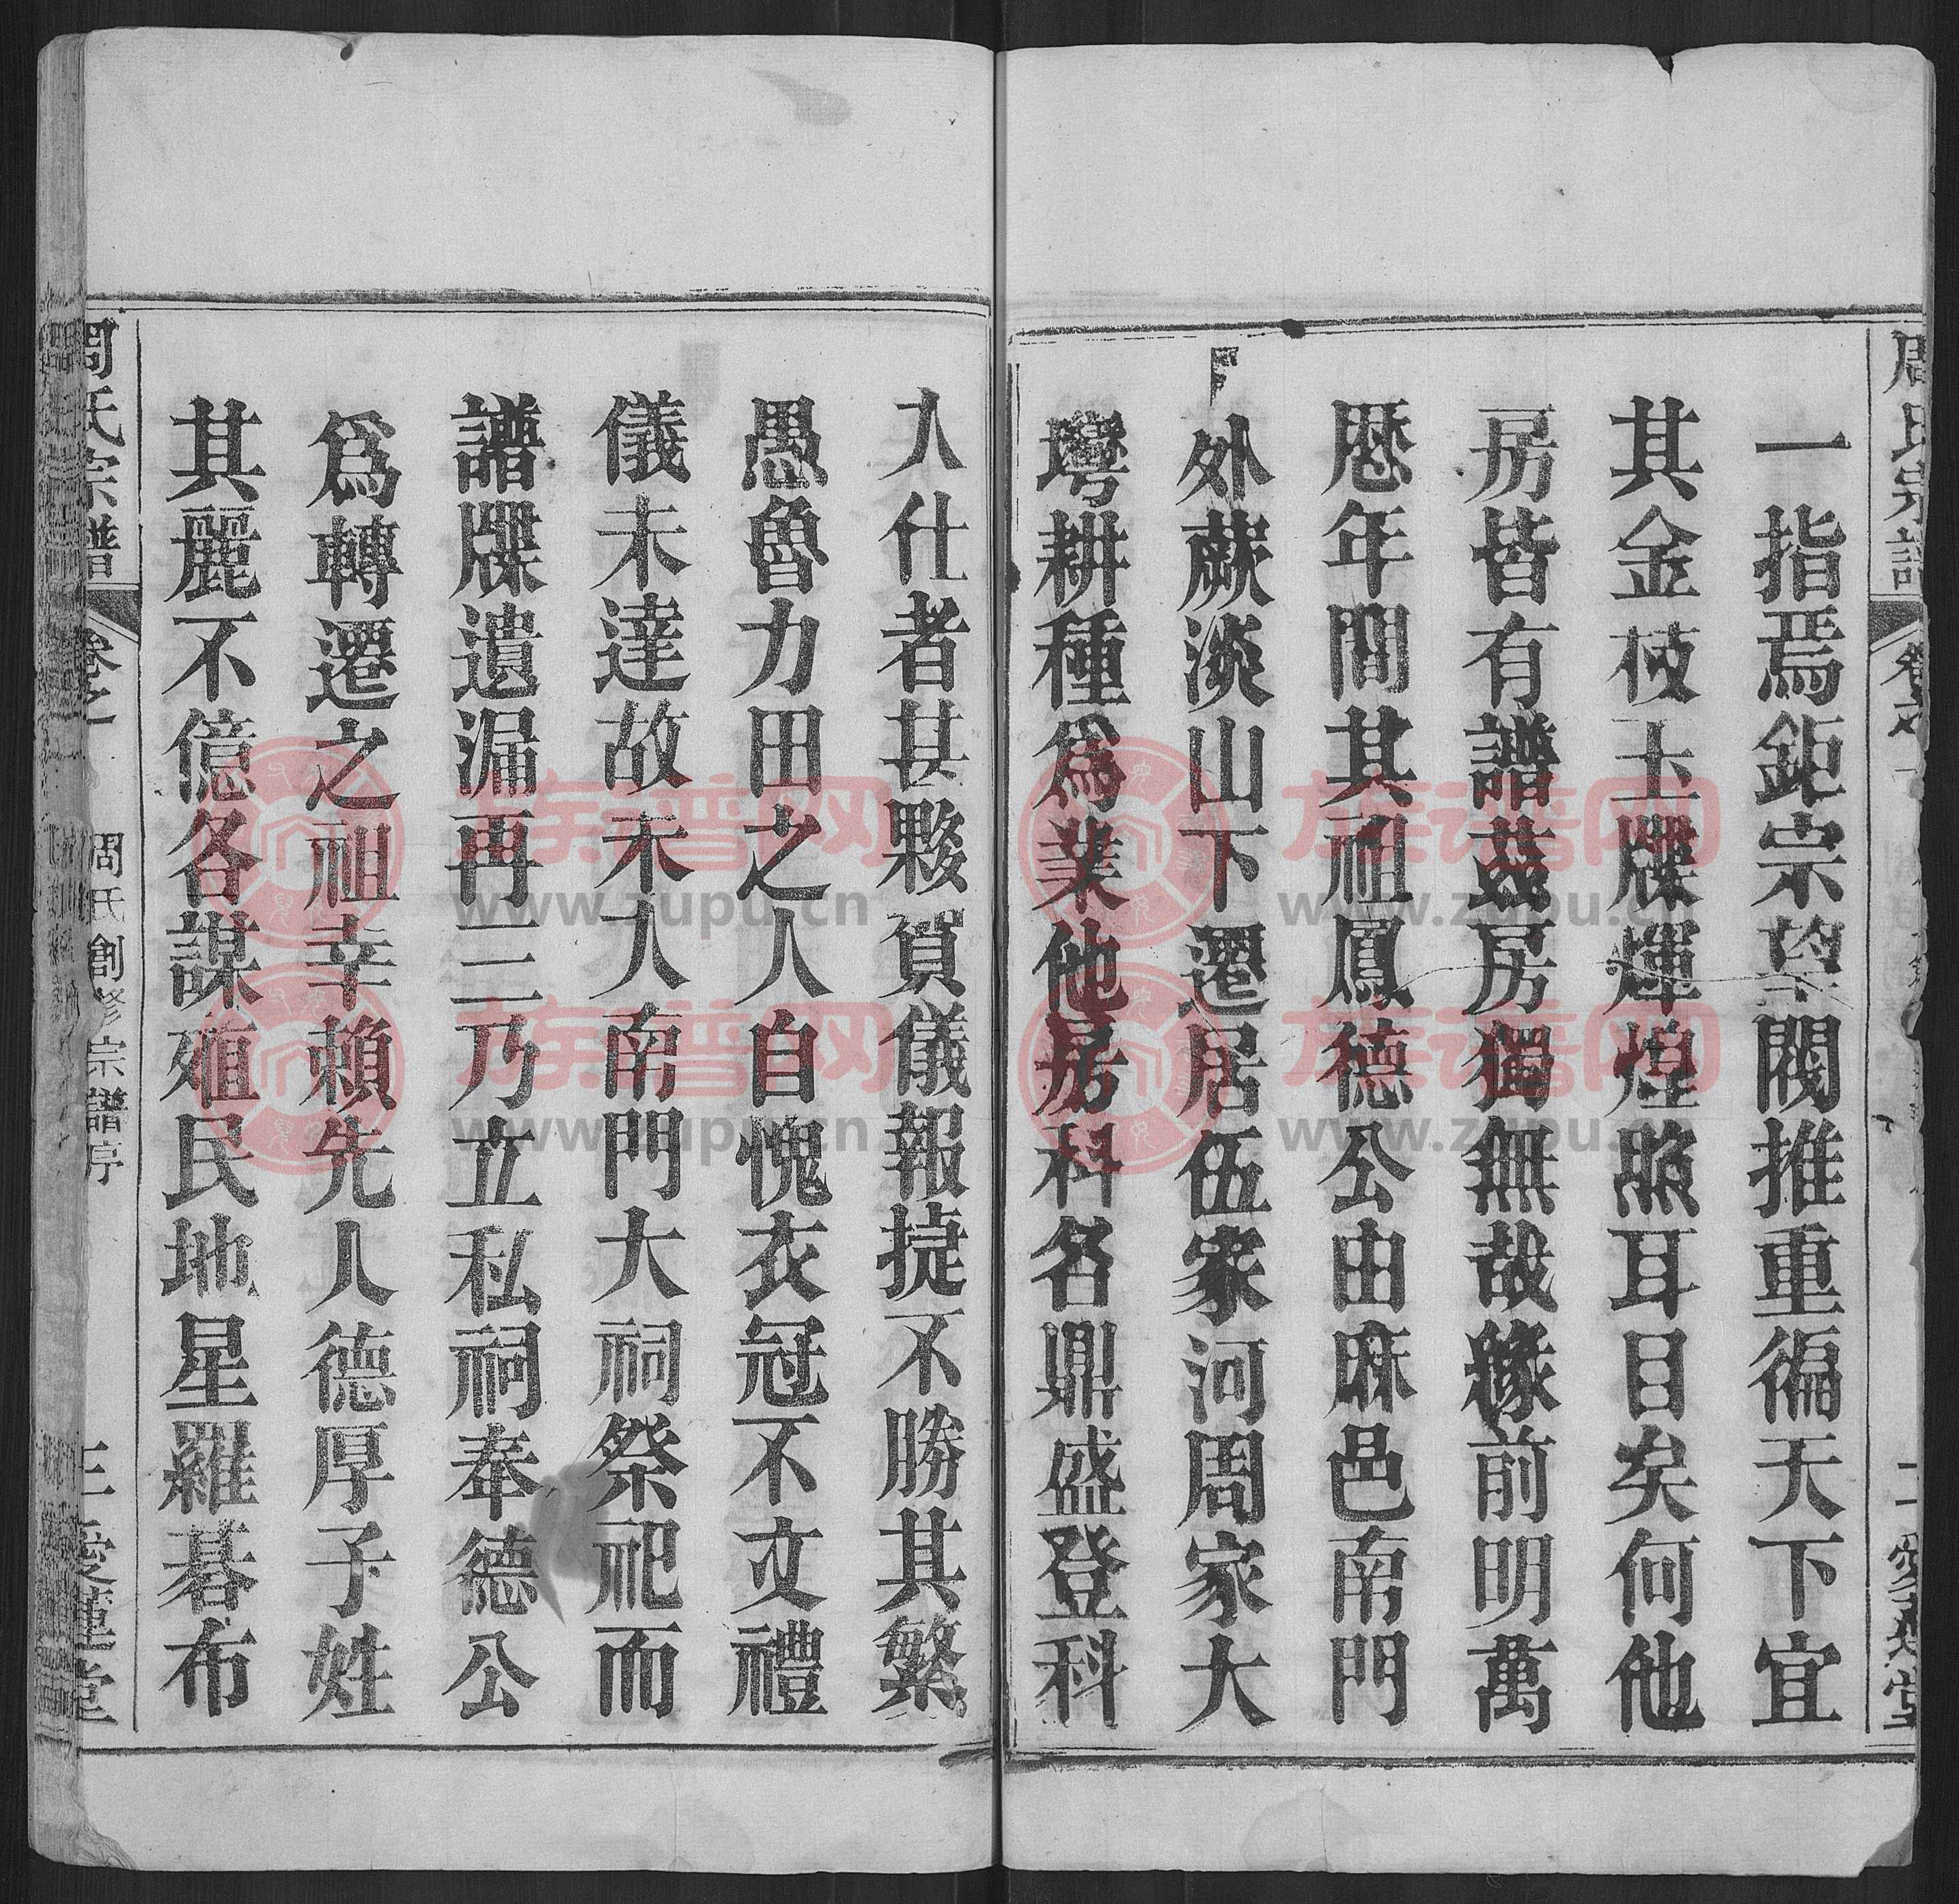 周氏宗譜
一指焉鉅宗望閥推重徧天下宜
其金枝玉牒輝煌照耳目矣何他
房皆有譜茲房獨無哉緣前明萬
歷年間其祖鳳德公由麻邑南門
外蕨淡山下遷居伍家河周家大
塆耕種爲業他房科名鼎盛登科
入仕者甚夥賀儀報捷不勝其繁
愚魯力田之人自愧衣冠不文禮
儀未達故未入南門大祠祭祀而
譜牒遺漏再三乃立私祠奉德公
爲轉遷之祖幸賴先人德厚子姓
其麗不億各謀殖民地星羅碁布
周氏宗譜
卷之
周氏創修宗譜序
三
愛蓮堂
族譜网
www.zupu.cn
族譜网
www.zupu.cn
族譜网
www.zupu.cn
族譜网
www.zupu.cn